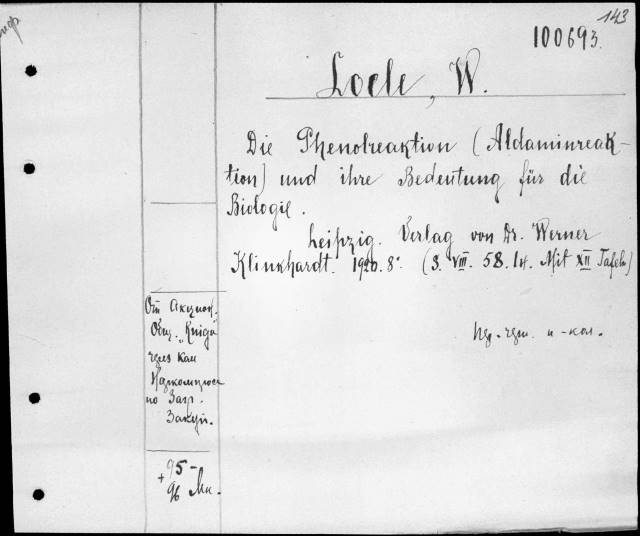 143
100693.
Loele, W.
Die Phenolreaktion (Aldaminreak-
tion) und ihre Bedeutung für die
Biologie.
Leipzig. Verlag von Dr. Werner
Klinkhardt. 1920. 8°. (3. VIII. 58. 14. Mit XII Tafeln)
От Акцион.
Общ. "Kniga"
через
по Загр.
Закуп.
+ 95-
96 Мк.